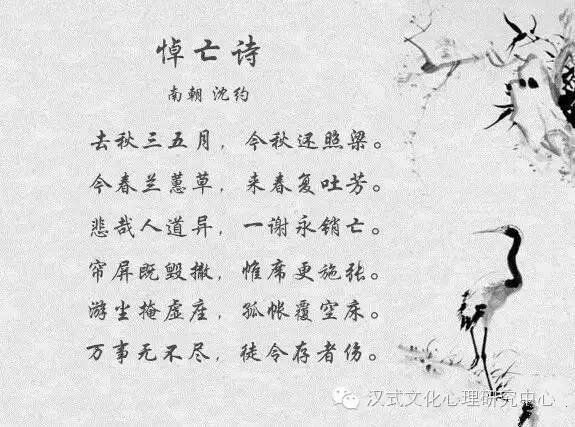 悼亡诗
南朝 沈约
去秋三五月，今秋还照梁。
今春兰蕙草，来春复吐芳。
悲哉人道异，一谢永销亡。
帘屏既毁撤，帷席更施张。
游尘掩虚座，孤帐覆空床。
万事无不尽，徒令存者伤。
汉式文化心理研究中心